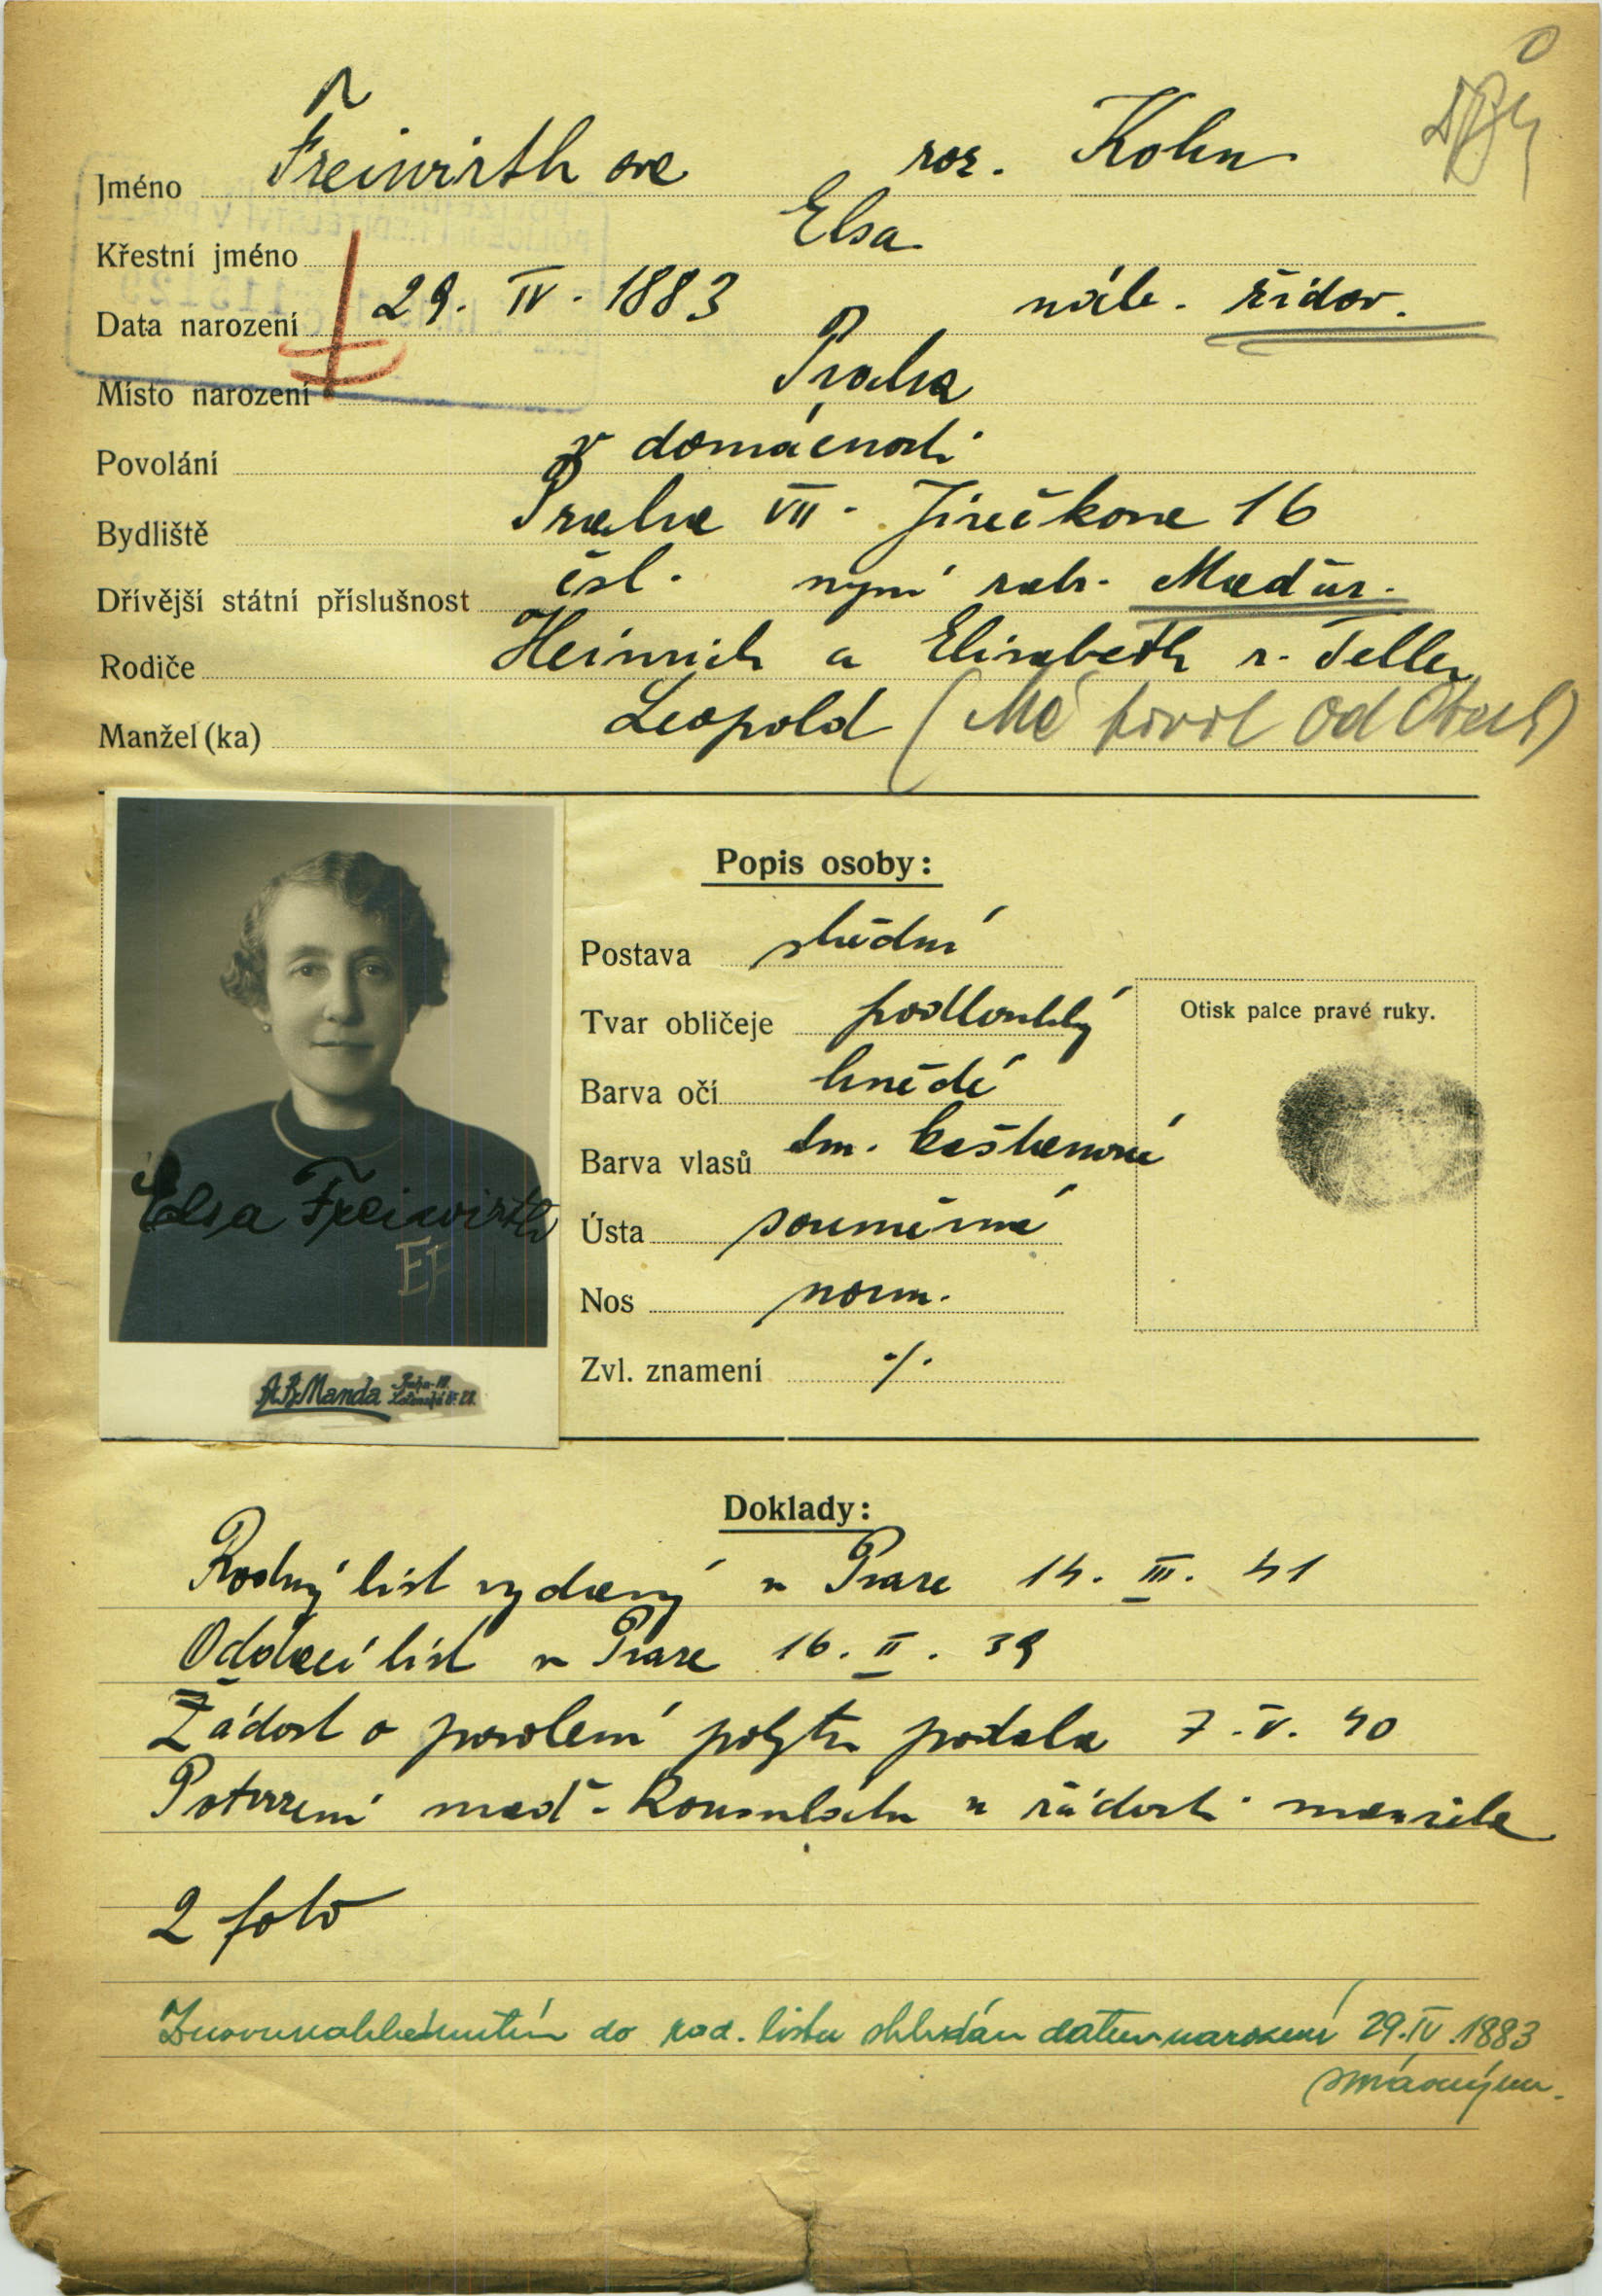 Jméno Freiwirth ová roz. Kohn
Křestní jméno Elsa
Data narození 29. IV. 1883 náb. židov.
Místo narození Praha
Povolání v domácnosti
Bydliště Praha VII. Jirečkova 16
Dřívější státní příslušnost čsl. nyní Maďar.
Rodiče Heinrich a Elisabeth r. Teller
Manžel(ka) Leopold (Má od
Popis osoby:
Postava střední
Tvar obličeje podlouhlý
Otisk palce pravé ruky.
Barva očí hnědé
Barva vlasů tm. kaštanové
Elsa Freiwirth
EF
Ústa souměrná
Nos norm.
Zvl. znamení ./.
Manda
Doklady:
Rodný list vydaný v Praze 14. III. 41
Oddací list v Praze 16. II. 39
Žádost o povolení pobytu podala 7. V. 40
Potvrzení maď. konsulátu u žádosti manžela
2 foto
do rod. listu shledán datum narození 29. IV. 1883
správným.